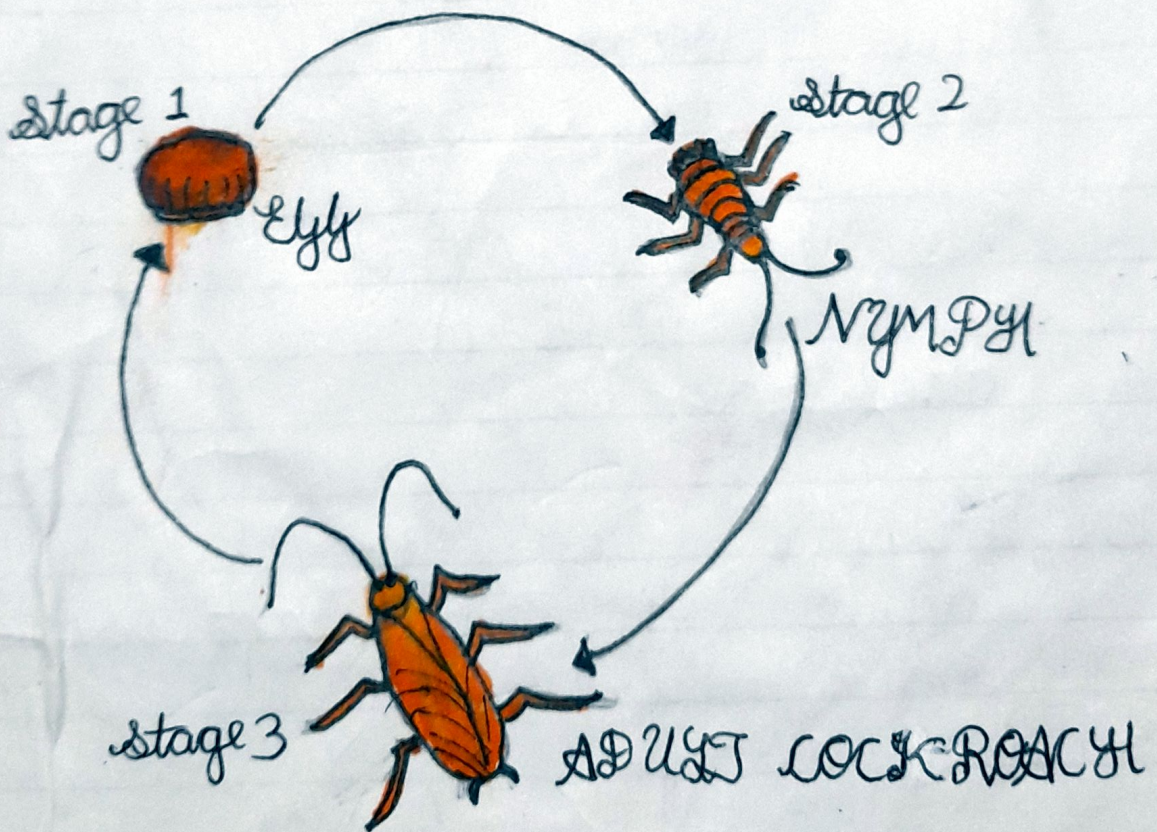 Stage 1
Stage 2
Egg
NYMPH
Stage 3
ADULT COCKROACH